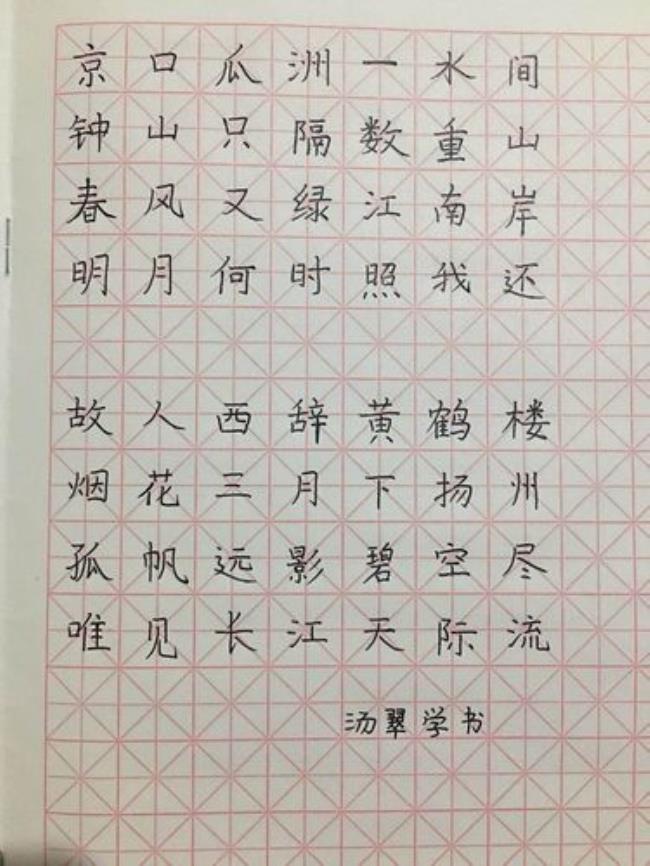 京口瓜洲一水间
钟山只隔数重山
春风又绿江南岸
明月何时照我还
故人西辞黄鹤楼
烟花三月下扬州
孤帆远影碧空尽
唯见长江天际流
汤翠学书